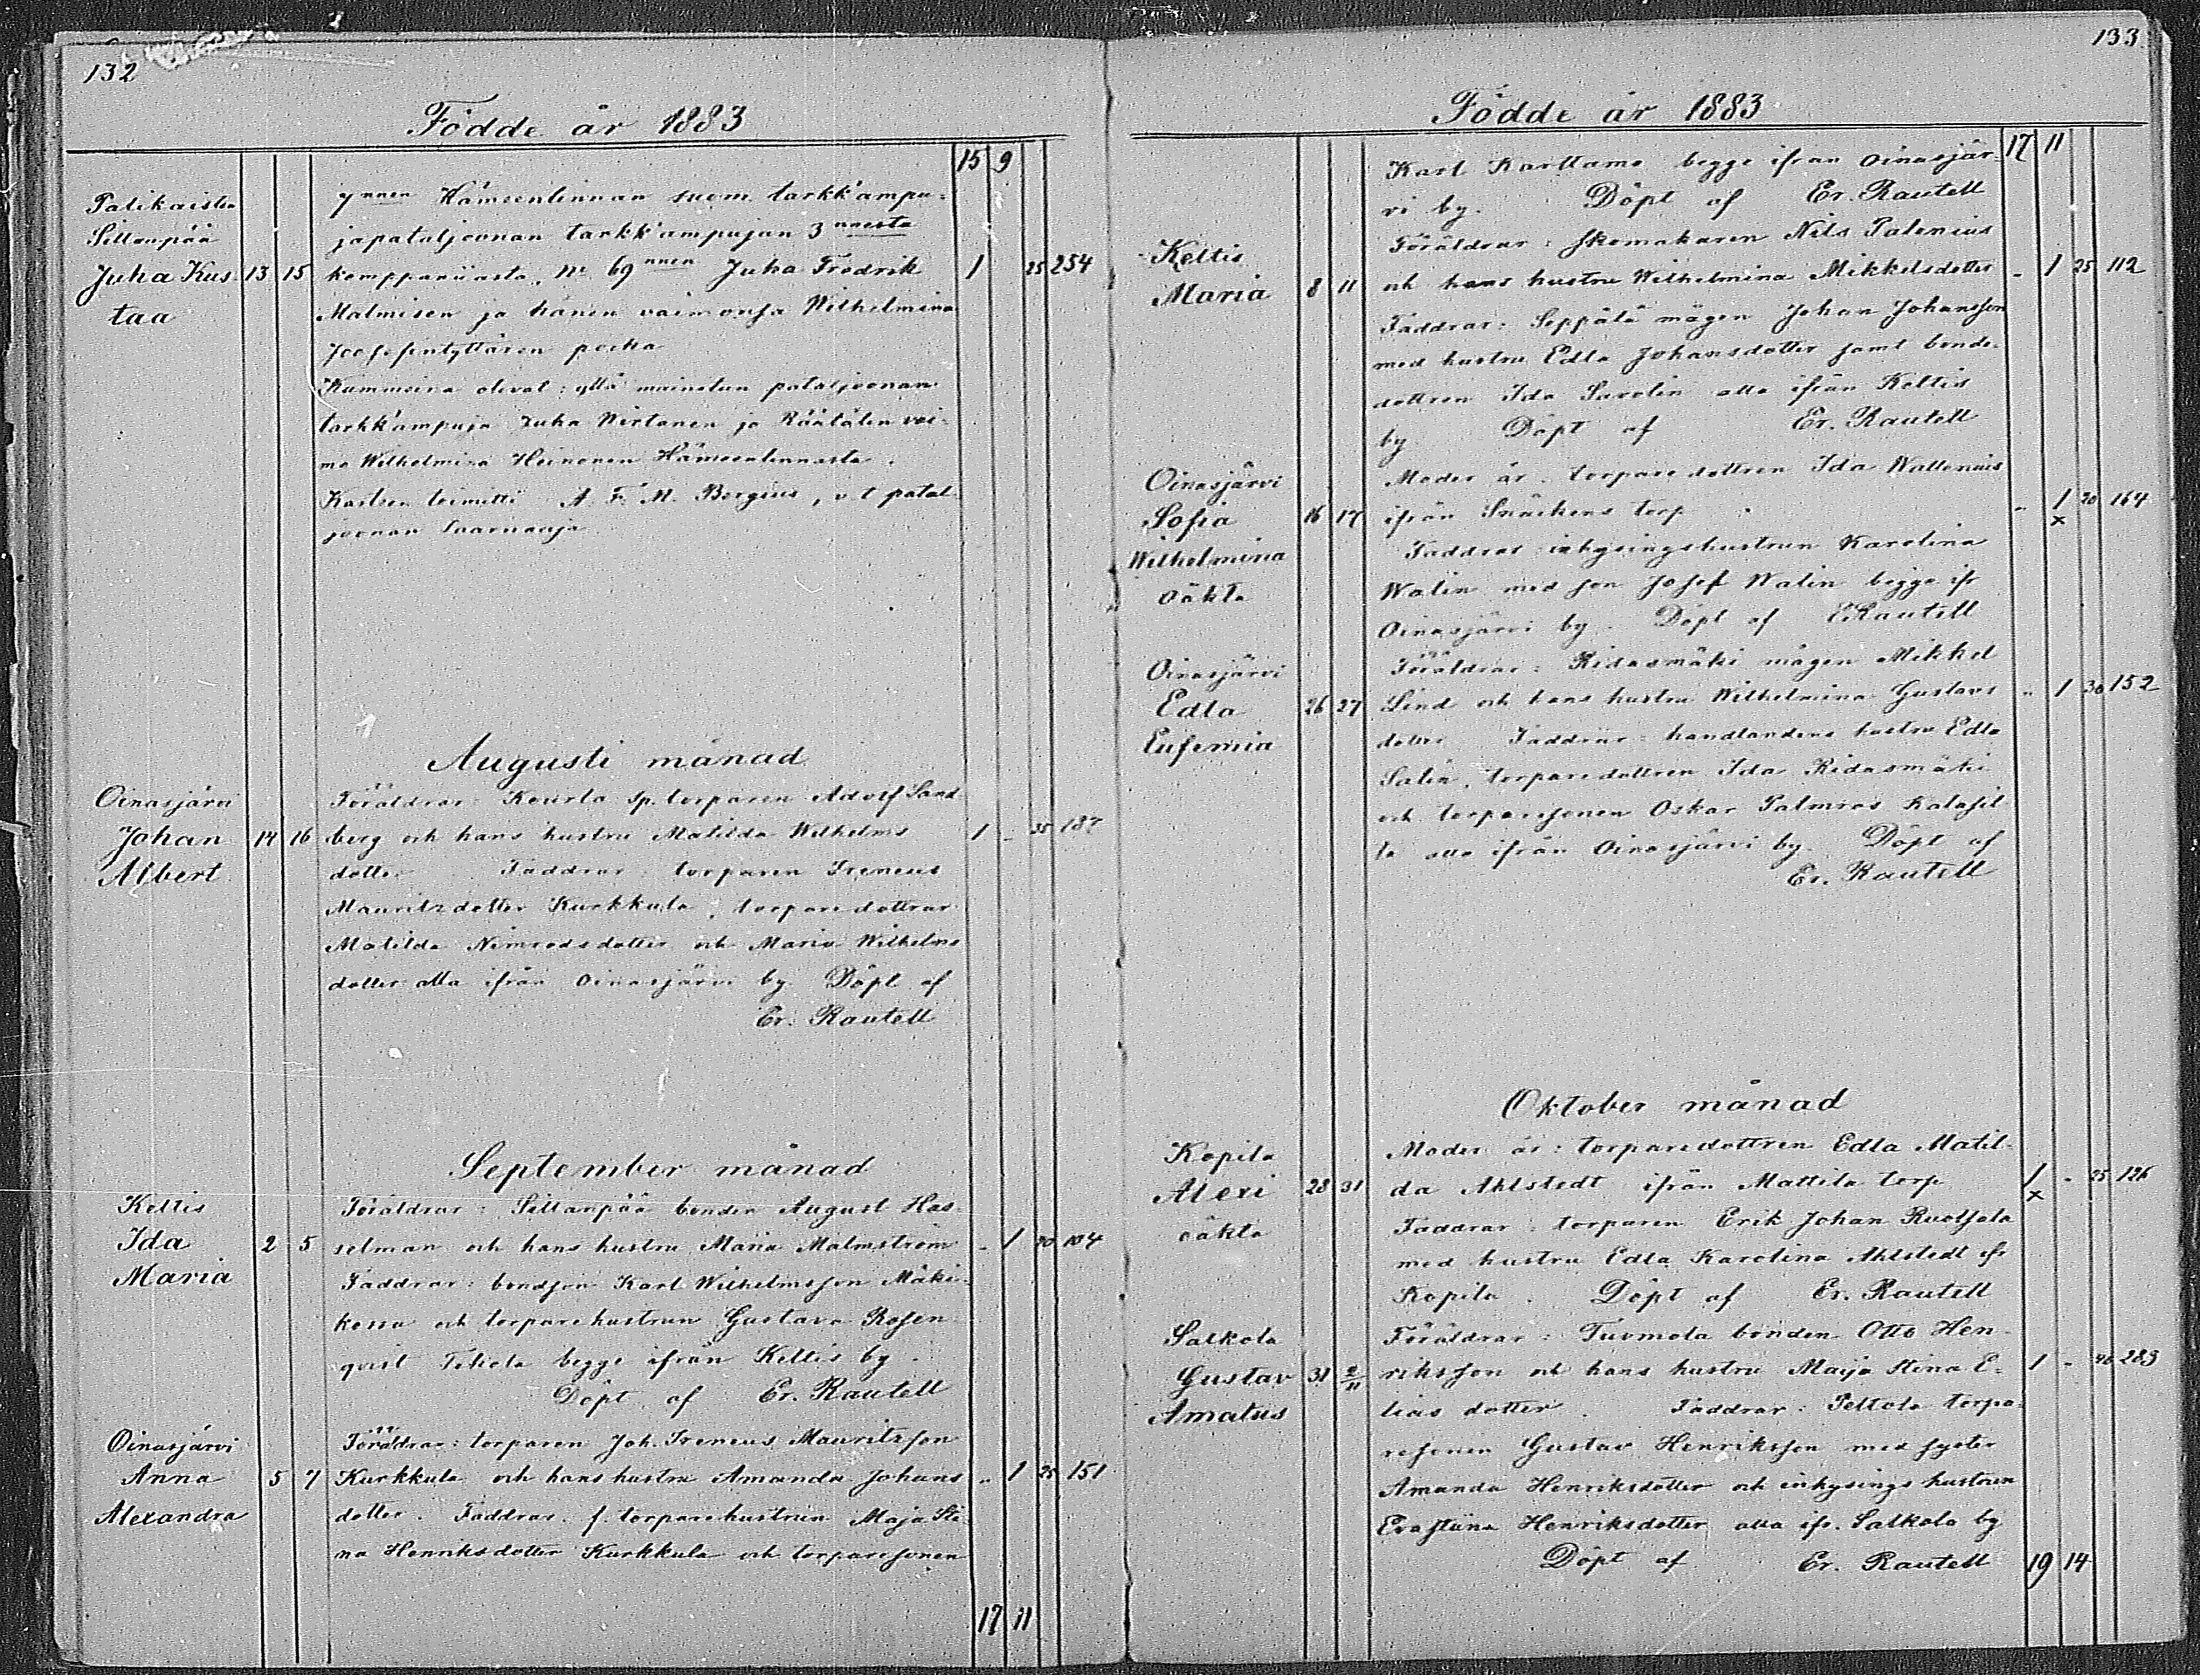 132
Födde år 1883
15 9
Palikaisten
Sillanpää
Juha Kus 13 15
taa
7nnen Hämeenlinnan suom. tarkk'ampu-
japataljoonan tarkk'ampujan 3nnesta
komppaniiasta, No 69nnen Juha Fredrik 1 25 254
Malmisen ja hänen vaimonsa Wilhelmina
Joosefintyttären poika
Kummeina olivat: yllä mainitun pataljoonan
tarkk'ampuja Juha Wirtanen ja Räätälin vai-
mo Wilhelmina Heinonen Hämeenlinnasta.
Kasteen toimitti A. F. M. Bergius, v. t. patal-
joonan Saarnaaja
Augusti månad
Oinasjärvi
Johan 14 16
Albert
Föräldrar: Kourla sp. torparen Adolf Sand
berg och hans hustru Matilda Wilhelms 1 - 35 187
dotter Faddrar: torparen Ireneus
Mauritzdotter Kurkkula, torparedottrar
Matilda Nimrodsdotter och Maria Wilhelms
dotter alla ifrån Oinasjärvi by Döpt af
Er. Rautell
September månad
Keltis
Ida 2 5
Maria
Föräldrar: Sillanpää bonden August Has
selman och hans hustru Maria Malmström - 1 20 104
Faddrar: bondson Karl Wilhelmsson Mäki-
kossa och torparehustrun Gustava Rosen
qvist Tekola begge ifrån Keltis by.
Döpt af Er. Rautell
Oinasjärvi
Anna 5 7
Alexandra
Föräldrar: torparen Joh. Ireneus Mauritzson
Kurkkula och hans hustru Amanda Johans - 1 25 151
dotter. Faddrar: f. torparehustrun Maja Sti-
na Henriksdotter Kurkkula och torparesonen
17 11
133
Födde år 1883
17 11
Karl Karttamo begge ifrån Oinasjär-
vi by. Döpt af Er. Rautell
Keltis
Maria 8 11
Föräldrar: skomakaren Nils Palenius
och hans hustru Wilhelmina Mikkelsdotter - 1 25 112
Faddrar: Seppälä mågen Johan Johansson
med hustru Edla Johansdotter samt bonde-
dottren Ida Sarolin alla ifrån Keltis
by Döpt af Er. Rautell
Oinasjärvi
Sofia 16 17
Wilhelmina
oäkta
Moder är: torparedottren Ida Wallenius
ifrån Snäckens torp - 1 20 164
x
Faddrar: inhysingshustrun Karolina
Walin med son Josef Walin begge ifr
Oinasjärvi by. Döpt af ERautell
Oinasjärvi
Edla 26 27
Eufemia
Föräldrar: Ridasmäki mågen Mikkel
Lind och hans hustru Wilhelmina Gustavs - 1 30 152
dotter Faddrar: handlandens hustru Edla
Salin, torparedottren Ida Ridasmäki
och torparesonen Oskar Palmros Kalasil
ta alla ifrån Oinasjärvi by. Döpt af
Er. Rautell
Oktober månad
Kopila
Alexi 28 31
oäkta
Moder är: torparedottren Edla Matil-
da Ahlstedt ifrån Mattila torp 1 - 25 126
x
Faddrar: torparen Erik Johan Ruotsala
med hustru Edla Karolina Ahlstedt ifr
Kopila. Döpt af Er. Rautell
Salkola
Gustav 31 2/11
Amatus
Föräldrar: Tuomola bonden Otto Hen-
riksson och hans hustru Maija Stina E- 1 - 40 283
lias dotter. Faddrar: Peltola torpa-
resonen Gustav Henriksson med syster
Amanda Henriksdotter och inhysings hustrun
Evastiina Henriksdotter alla ifr. Salkola by
Döpt af Er. Rautell 19 14